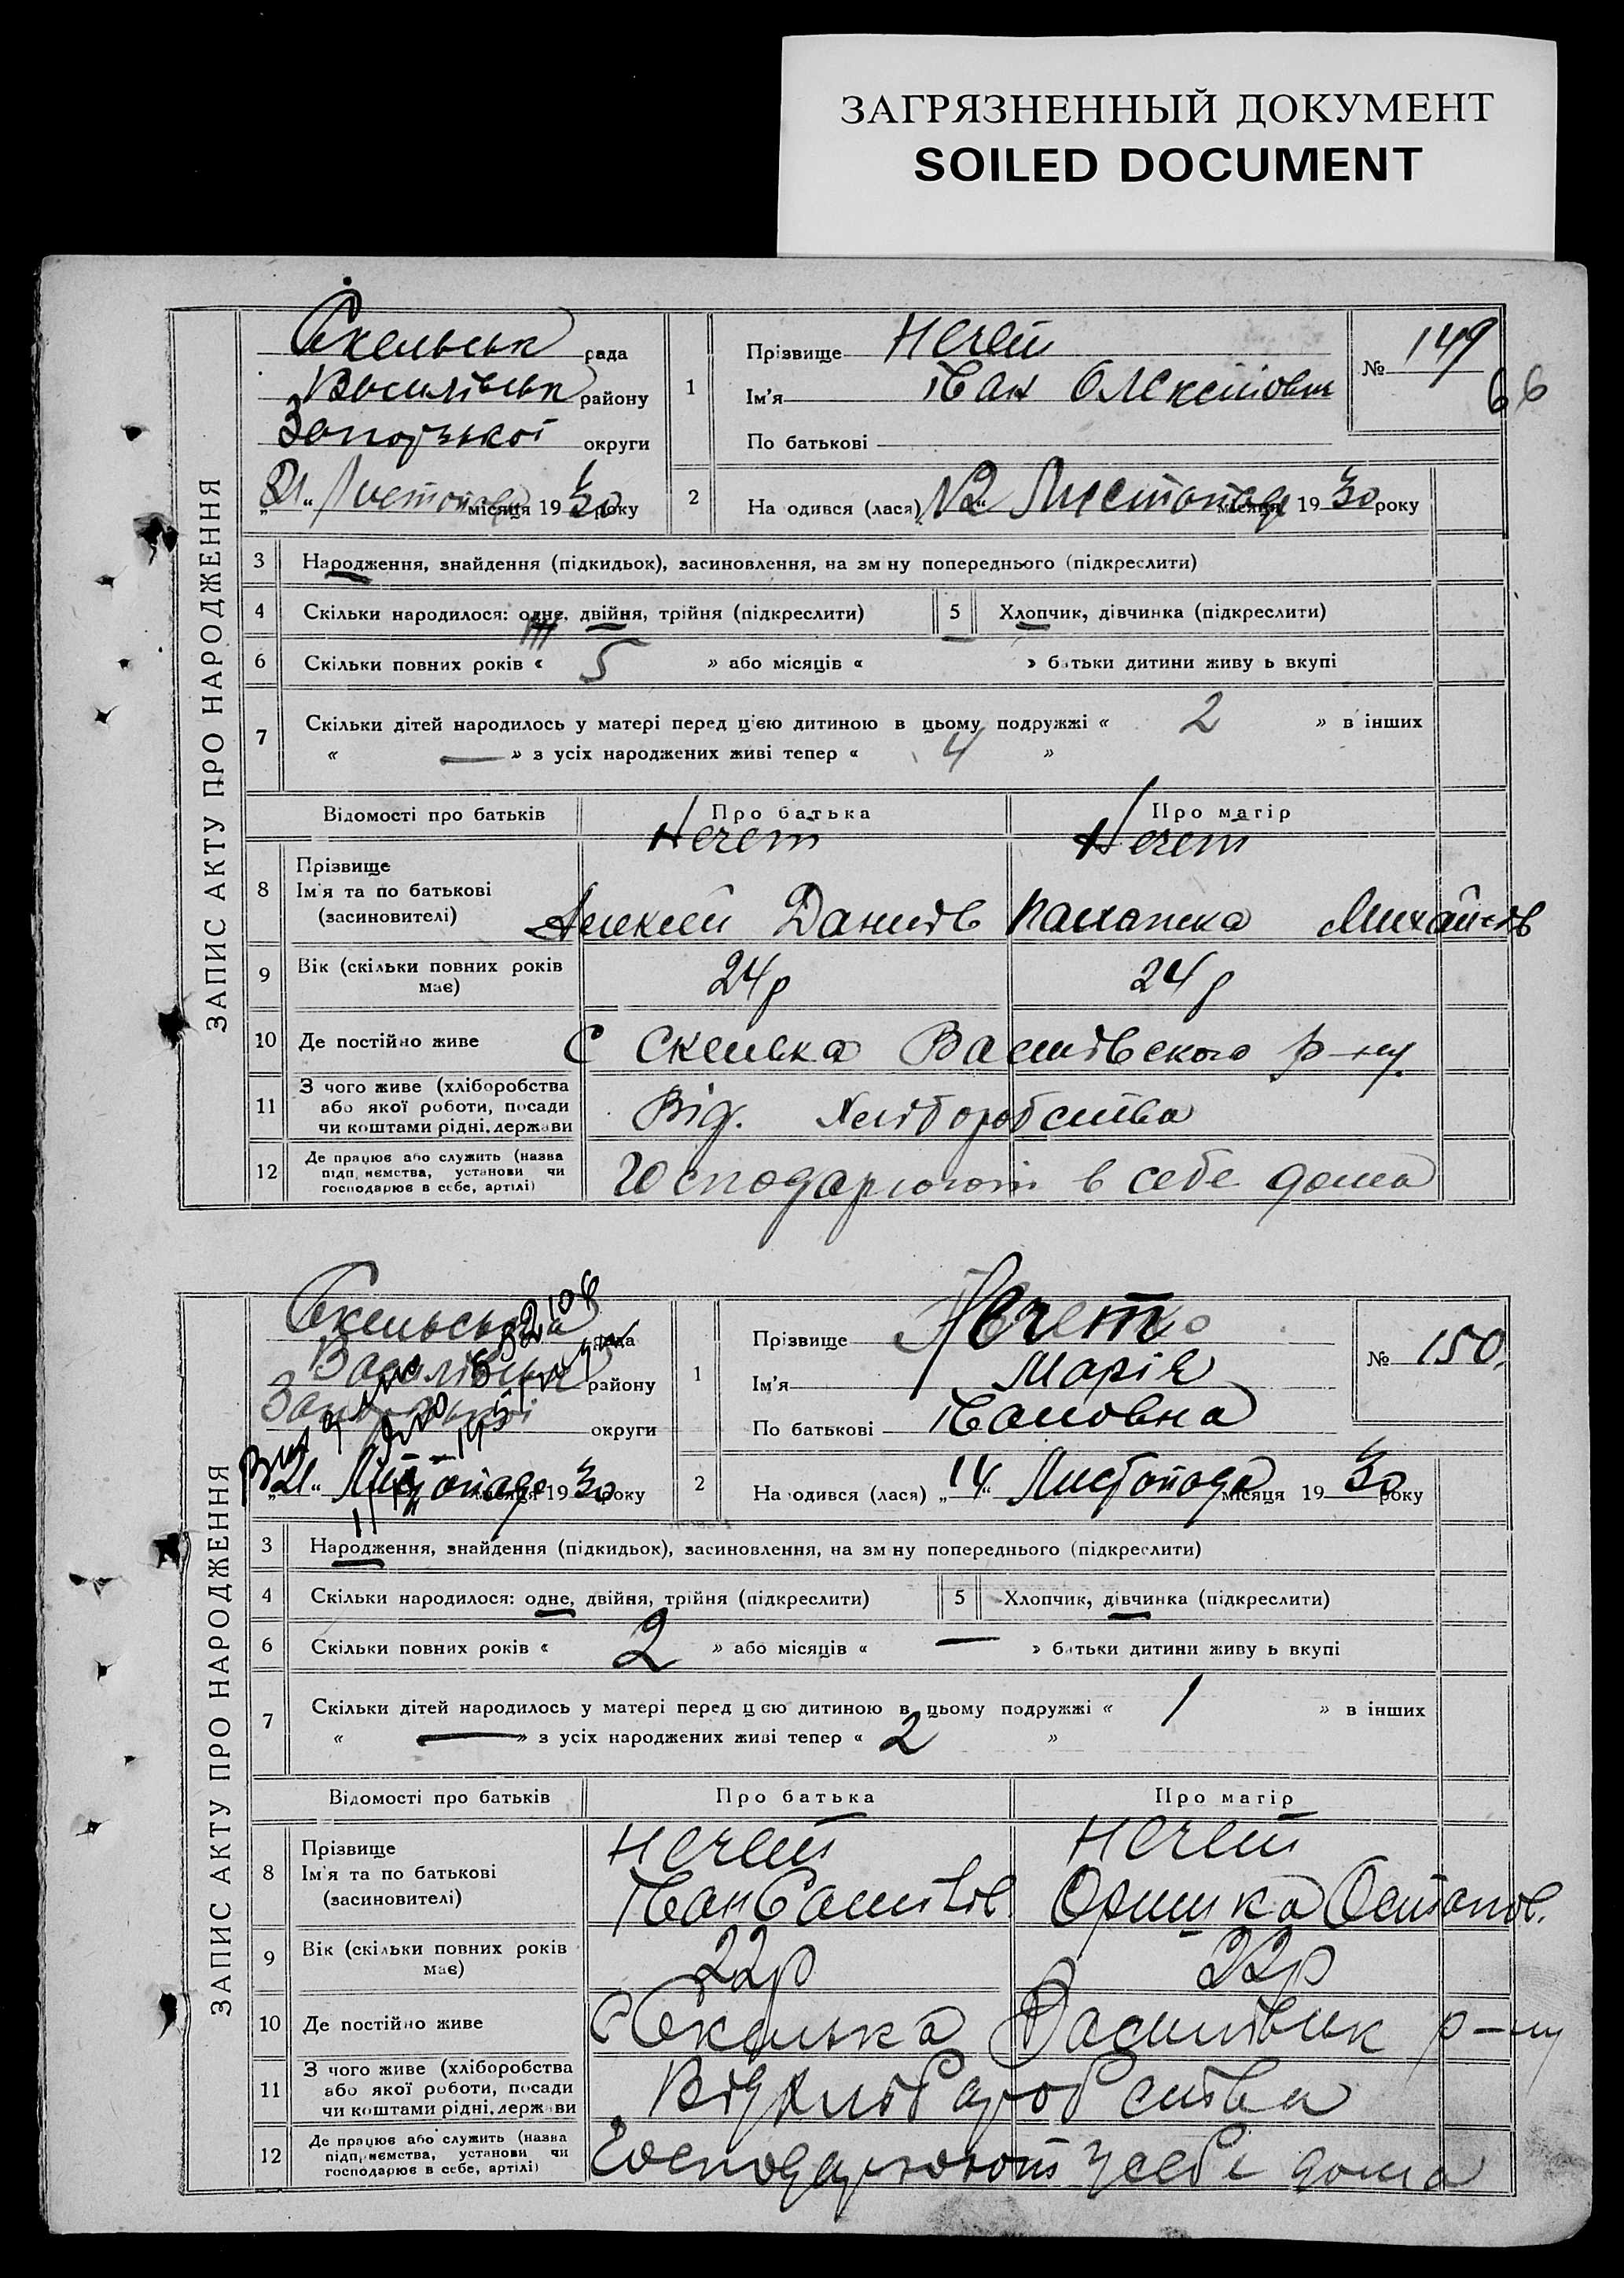 ЗАГРЯЗНЕННЫЙ ДОКУМЕНТ
SOILED DOCUMENT
66
ЗАПИС АКТУ ПРО НАРОДЖЕННЯ
Скельськ рада
Василівськ району
Запорізької округи
„21“ Листопада місяця 1930 року
1
Прізвище Нечет
Ім'я Іван Олексійович
По батькові
№ 149
2
На одився (лася) „12“ Листопада місяця 1930 року
3 Народження, знайдення (підкидьок), засиновлення, на зм ну попереднього (підкреслити)
4 Скільки народилося: одне, двійня, трійня (підкреслити) 5 Хлопчик, дівчинка (підкреслити)
6 Скільки повних років « 5 » або місяців « » батьки дитини живу ь вкупі
7 Скільки дітей народилось у матері перед цією дитиною в цьому подружжі « 2 » в інших
« — » з усіх народжених живі тепер « 4 »
Відомості про батьків Про батька Про матір
8 Прізвище Нечет Нечет
Ім'я та по батькові
(засновителі) Алексей Данилів Палажка Михайлів
9 Вік (скільки повних років має) 24р 24р
10 Де постійно живе С Скелька Василівского р-ну
11 З чого живе (хліборобства
або якої роботи, посади
чи коштами рідні, держави Від. Хліборобства
12 Де працює або служить (назва
підп иємства, установи чи
господарює в себе, артілі) Господарюють в себе дома
ЗАПИС АКТУ ПРО НАРОДЖЕННЯ
Скельська рада
Василівськ району
Запорізької округи
„21“ Листопада місяця 1930 року
1
Прізвище Нечет
Ім'я Марія
По батькові Івановна
№ 150.
2
На одився (лася) „14“ Листопада місяця 1930 року
3 Народження, знайдення (підкидьок), засиновлення, на зм ну попереднього (підкреслити)
4 Скільки народилося: одне, двійня, трійня (підкреслити) 5 Хлопчик, дівчинка (підкреслити)
6 Скільки повних років « 2 » або місяців « — » батьки дитини живу ь вкупі
7 Скільки дітей народилось у матері перед ц єю дитиною в цьому подружжі « 1 » в інших
« — » з усіх народжених живі тепер « 2 »
Відомості про батьків Про батька Про матір
8 Прізвище Нечет Нечет
Ім'я та по батькові
(засновителі) Іван Оришка Остапов.
9 Вік (скільки повних років має) 22р 22р
10 Де постійно живе С Скелька Василівськ р-ну
11 З чого живе (хліборобства
або якої роботи, посади
чи коштами рідні, держави Від хліборобства
12 Де працює або служить (назва
підп иємства, установи чи
господарює в себе, артілі) Господарюють у себе дома